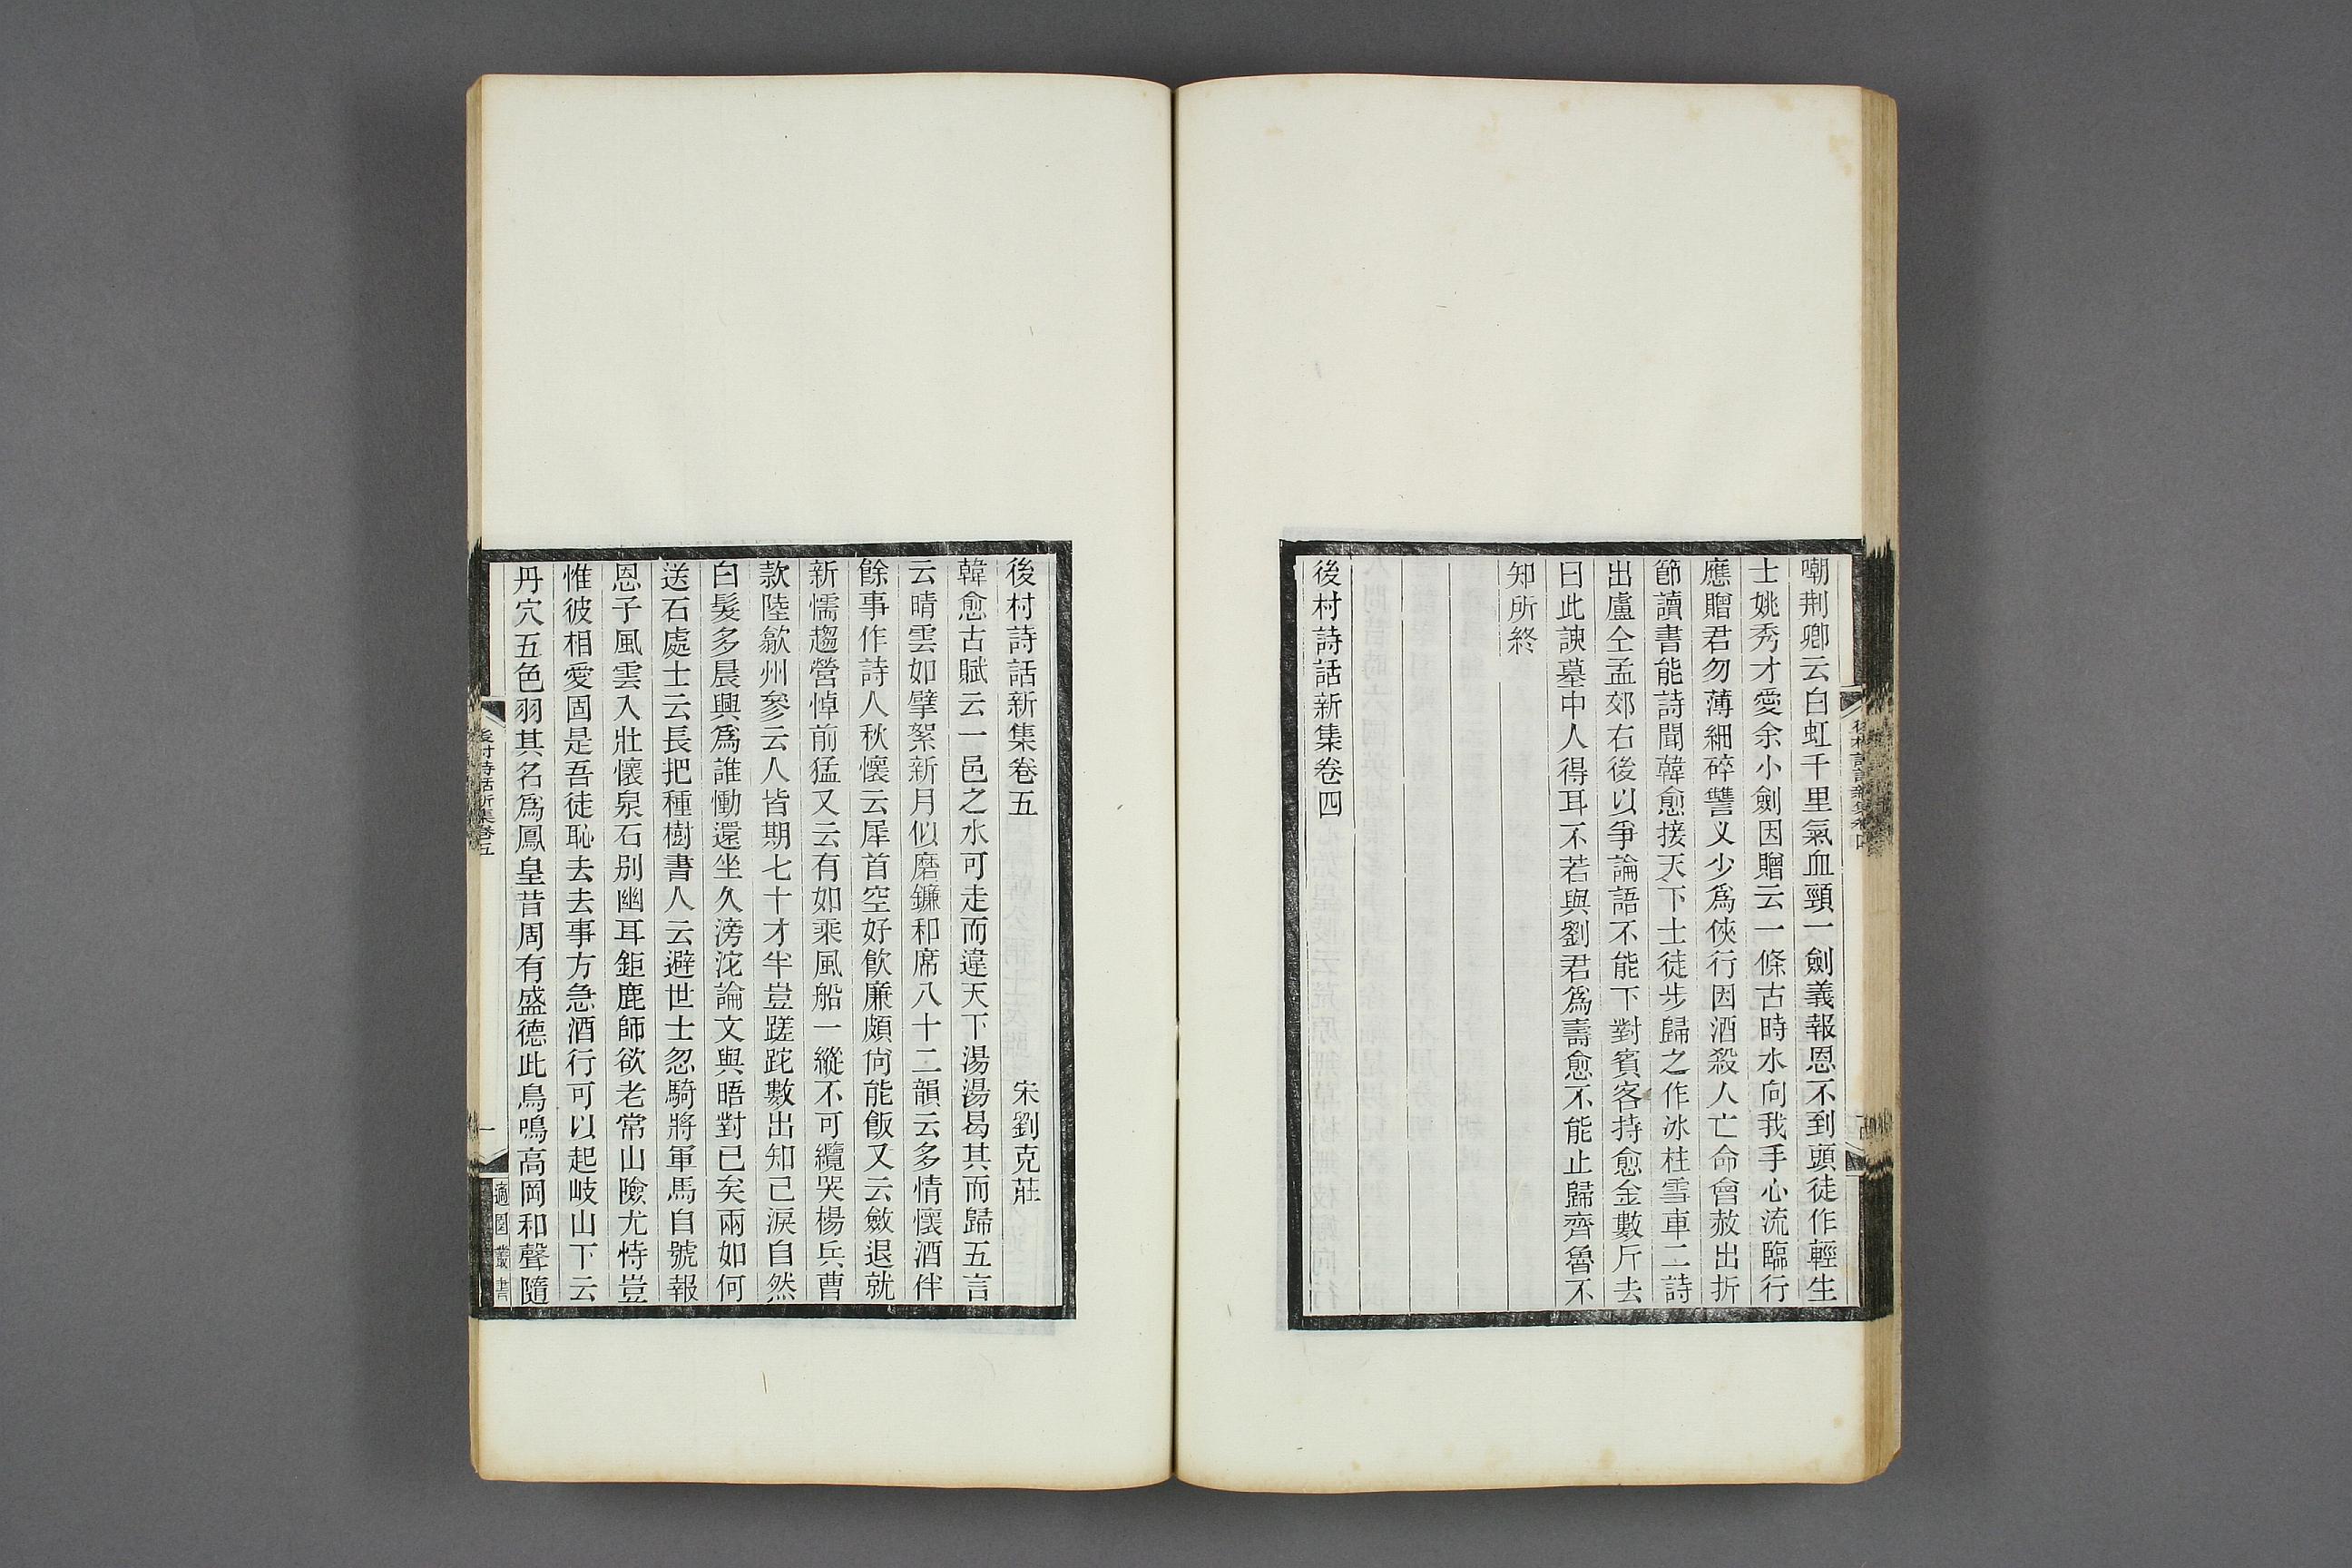 嘲荆卿云白虹千里氣血頸一劍義報恩不到頭徒作輕生
士姚秀才愛余小劍因贈云一條古時水向我手心流臨行
應贈君勿薄細碎讐义少爲俠行因酒殺人亡命會赦出折
節讀書能詩聞韓愈接天下士徒步歸之作冰柱雪車二詩
出盧仝孟郊右後以爭論語不能下對賓客持愈金數斤去
曰此諛墓中人得耳不若與劉君爲壽愈不能止歸齊魯不
知所終
後村詩話新集卷四
後村詩話新集卷五
宋劉克莊
韓愈古賦云一邑之水可走而違天下湯湯曷其而歸五言
云晴雲如擘絮新月似磨鐮和席八十二韻云多情懷酒伴
餘事作詩人秋懷云犀首空好飲廉頗尙能飯又云斂退就
新懦趨營悼前猛又云有如乘風船一縱不可纜哭楊兵曹
款陸歙州參云人皆期七十才半豈蹉跎數出知己淚自然
白髮多晨興爲誰慟還坐久滂沱論文與晤對已矣兩如何
送石處士云長把種樹書人云避世士忽騎將軍馬自號報
恩子風雲入壯懷泉石别幽耳鉅鹿師欲老常山險尤恃豈
惟彼相愛固是吾徒恥去去事方急酒行可以起岐山下云
丹穴五色羽其名爲鳳皇昔周有盛德此鳥鳴高岡和聲隨
後村詩話新集卷五
一
適園叢書